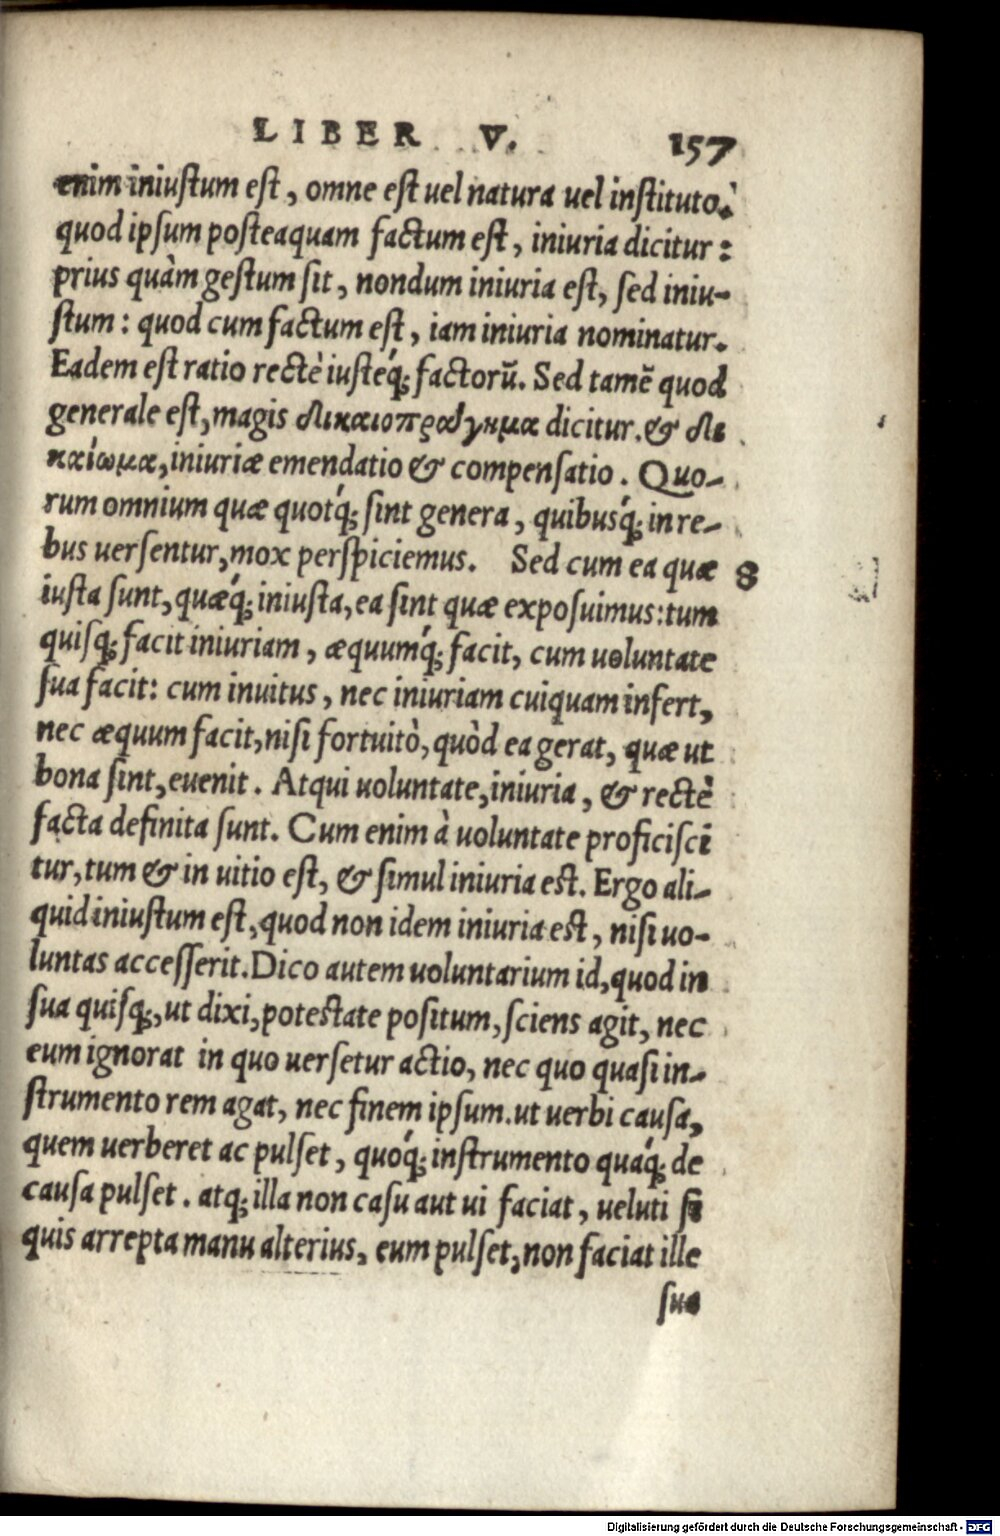 LIBER V. 157
enim iniuſtum eſt, omne eſt uel natura uel inſtituto:
quod ipſum poſteaquam factum eſt, iniuria dicitur:
prius quàm geſtum ſit, nondum iniuria eſt, ſed iniu-
ſtum: quod cum factum eſt, iam iniuria nominatur.
Eadem eſt ratio rectè iuſteq́; factorū. Sed tamē quod
generale eſt, magis δικαιοπράγημα dicitur. & δι
καίωμα, iniuriæ emendatio & compenſatio. Quo-
rum omnium quæ quotq́; ſint genera, quibusq́; in re-
bus uerſentur, mox perſpiciemus. Sed cum ea quæ 8
iuſta ſunt, quæq́; iniuſta, ea ſint quæ expoſuimus: tum
quiſq; facit iniuriam, æquumq́; facit, cum uoluntate
ſua facit: cum inuitus, nec iniuriam cuiquam infert,
nec æquum facit, niſi fortuitò, quòd ea gerat, quæ ut
bona ſint, euenit. Atqui uoluntate, iniuria, & rectè
facta definita ſunt. Cum enim à uoluntate proficiſci
tur, tum & in uitio eſt, & ſimul iniuria est. Ergo ali-
quid iniuſtum eſt, quod non idem iniuria est, niſi uo-
luntas acceſſerit. Dico autem uoluntarium id, quod in
ſua quiſq;, ut dixi, potestate poſitum, ſciens agit, nec
eum ignorat in quo uerſetur actio, nec quo quaſi in-
ſtrumento rem agat, nec finem ipſum. ut uerbi cauſa,
quem uerberet ac pulſet, quoq́; inſtrumento quaq́; de
cauſa pulſet. atq; illa non caſu aut ui faciat, ueluti ſi
quis arrepta manu alterius, eum pulſet, non faciat ille
ſua
Digitalisierung gefördert durch die Deutsche Forschungsgemeinschaft - DFG